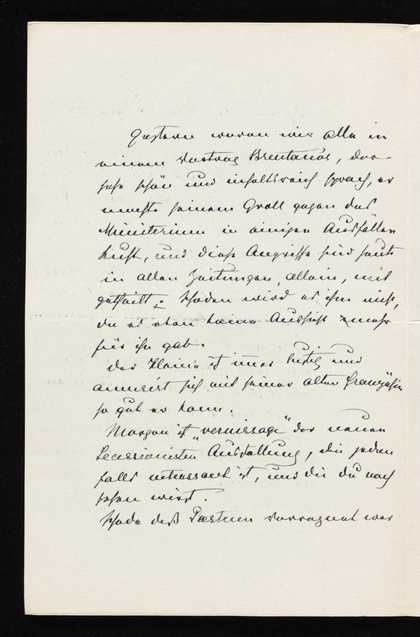 Gestern waren wir alle in
einem Vortrag Brentanos, der
sehr schön und inhaltsreich sprach, er
machte seinem Groll gegen das
Ministerium in einigen Ausfällen
Luft, und diese Angriffe sind heute
in allen Zeitungen, allein, mit
getheilt. Schaden wird es ihm nicht,
da es eben keine Aussicht mehr
für ihn gab.
Der Kleine ist immer lustig und
amusirt sich mit seiner alten Französin
so gut er kann.
Morgen ist „vernissage" der neuen
Secessionisten Ausstellung, die jeden
falls interessant ist, und die du noch
sehen wirst.
Schade daß Paestum verregnet war